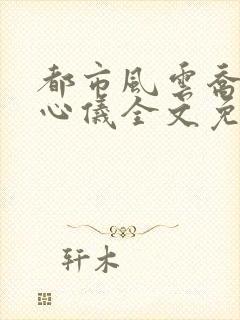 都市風雲喬
心儀全文免
轩木